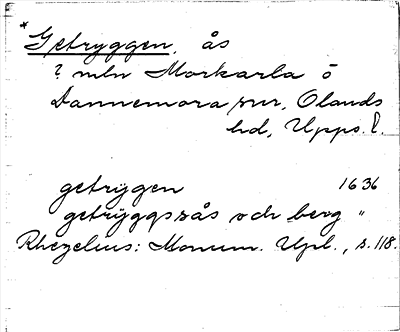 *Getryggen, ås
? mln Morkarla o
Dannemora snr, Olands
hd, Upps. l.
getrÿgen 1636
getrÿggzås och berg "
Rhezelius: Monum. Upl., s. 118.